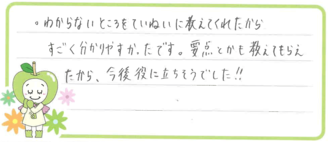 。わからないところをていねいに教えてくれたから
すごく分かりやすかったです。要点とかも教えてもらえ
たから、今後役に立ちそうでした!!